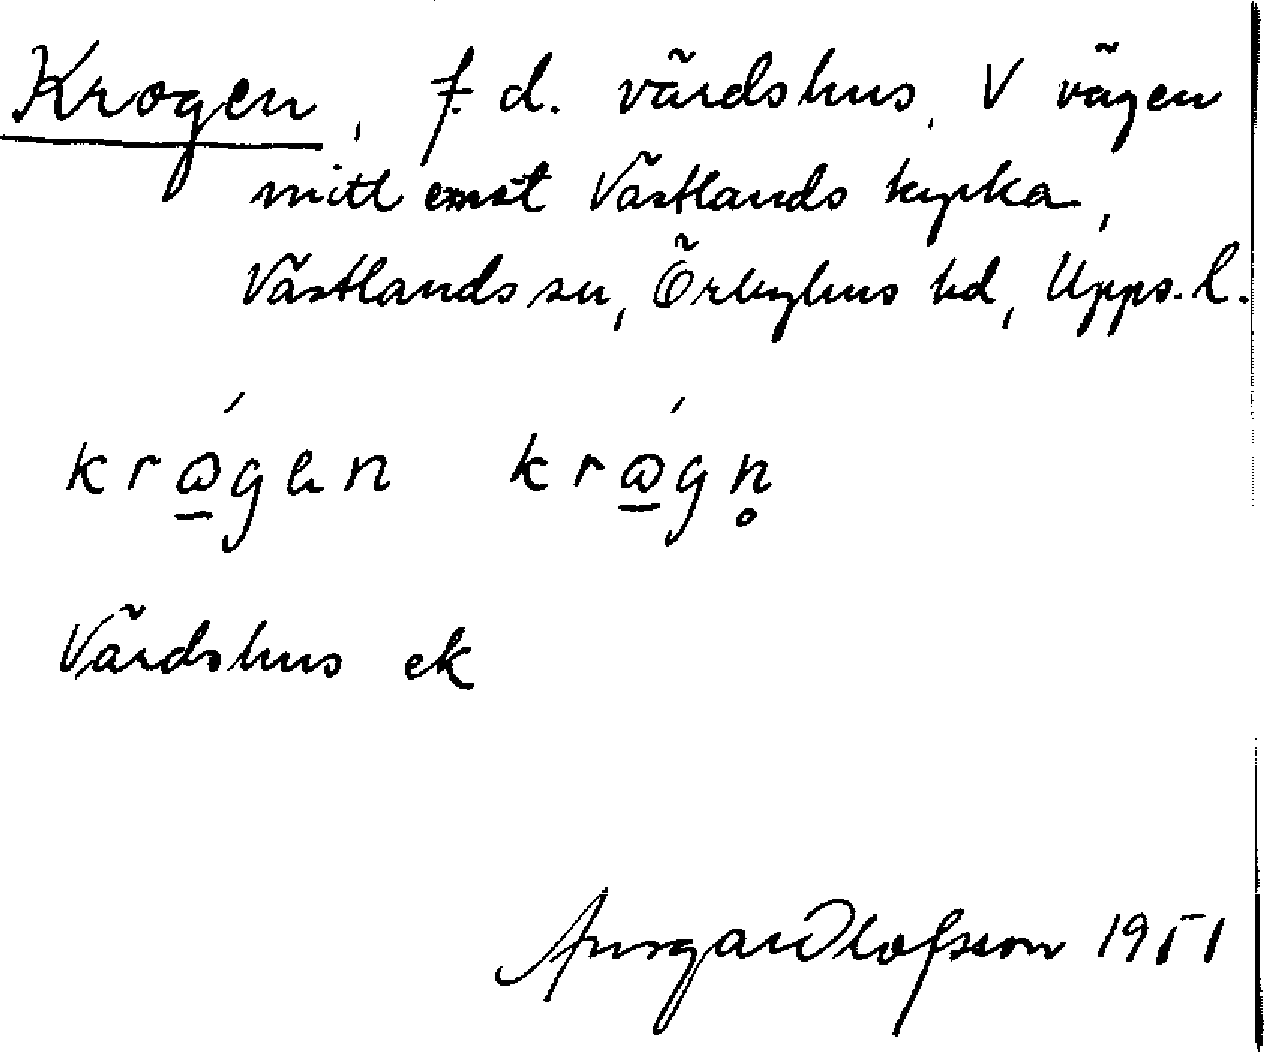 Krogen, f. d. värdshus, V vägen
mitt emot Västlands kyrka,
Västlands sn, Örbyhus hd, Upps. l.
krώ̲gen krώ̲gn̥
Värdshus ek
Olofsson 1951